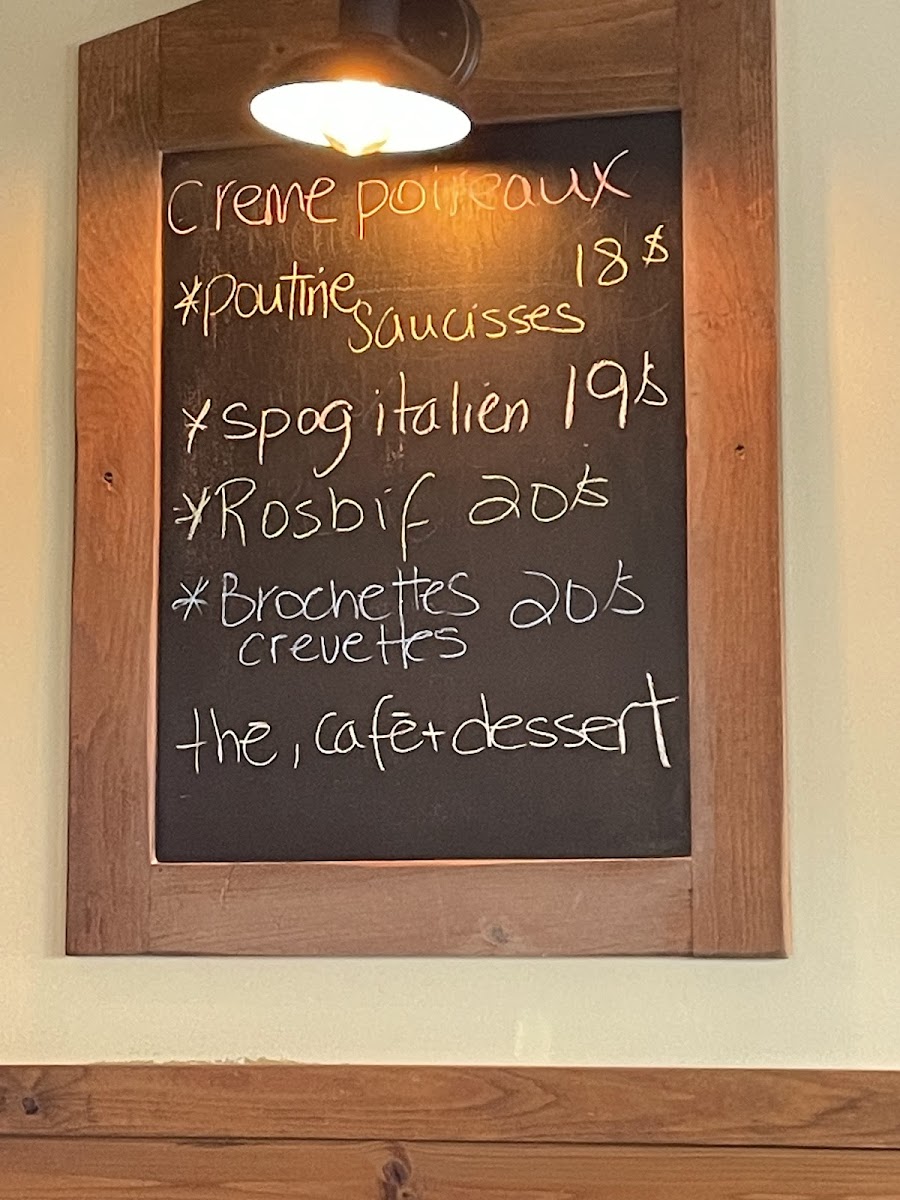 Creme poireaux
*Poutine 18$
saucisses
*spag italien 19$
*Rosbif 20$
*Brochettes 20$
crevettes
thé, café + dessert